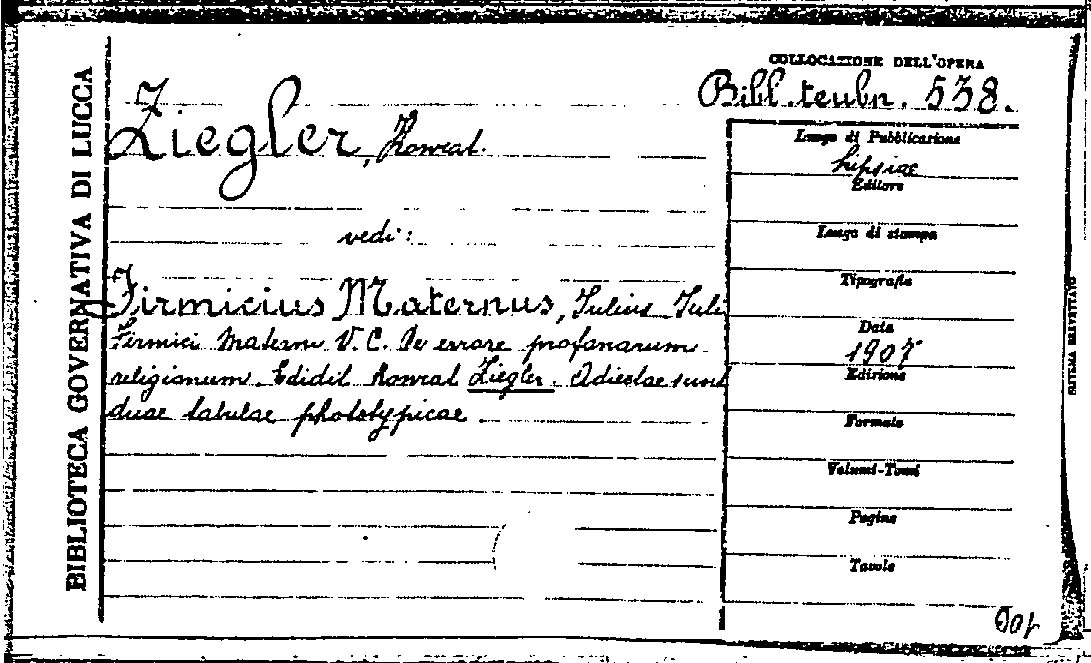 COLLOCAZIONE DELL'OPERA
Bibl. teubn. 538.
Ziegler, Konrat.
vedi:
Firmicius Maternus, Iulius Iuli
Firmici Materni V. C. De errore profanarum
religionum. Edidit Konrat Ziegler. Adiectae sunt
duae tabulae phototypicae
Luogo di Pubblicazione
Lipsiae
Editore
Luogo di stampa
Tipografia
Data
1907
Edizione
Formato
Volumi-Tomi
Pagine
Tavole
BIBLIOTECA GOVERNATIVA DI LUCCA
SISTEMA BREVETTATO